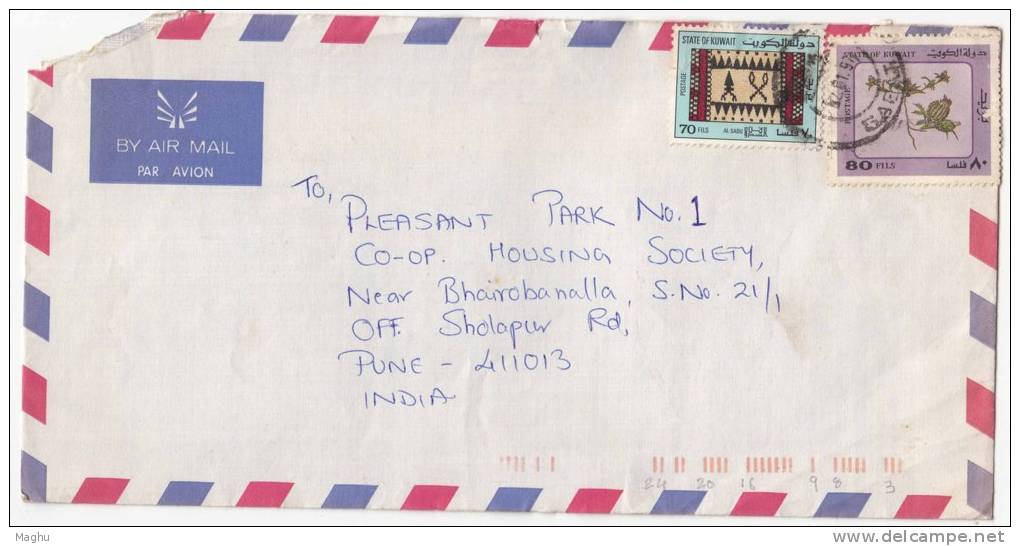 STATE OF KUWAIT دولة الكويت
POSTAGE
70 FILS AL-SADU ٧٠ فلسا
STATE OF KUWAIT دولة الكويت
POSTAGE بريد
80 FILS ٨٠ فلسا
BY AIR MAIL
PAR AVION
To,
PLEASANT PARK No. 1
CO-OP. HOUSING SOCIETY,
Near Bhairobanalla, S.No. 21/1
OFF. Sholapur Rd,
PUNE - 411013
INDIA
24 20 16 9 8 3
Maghu
delcampe.net